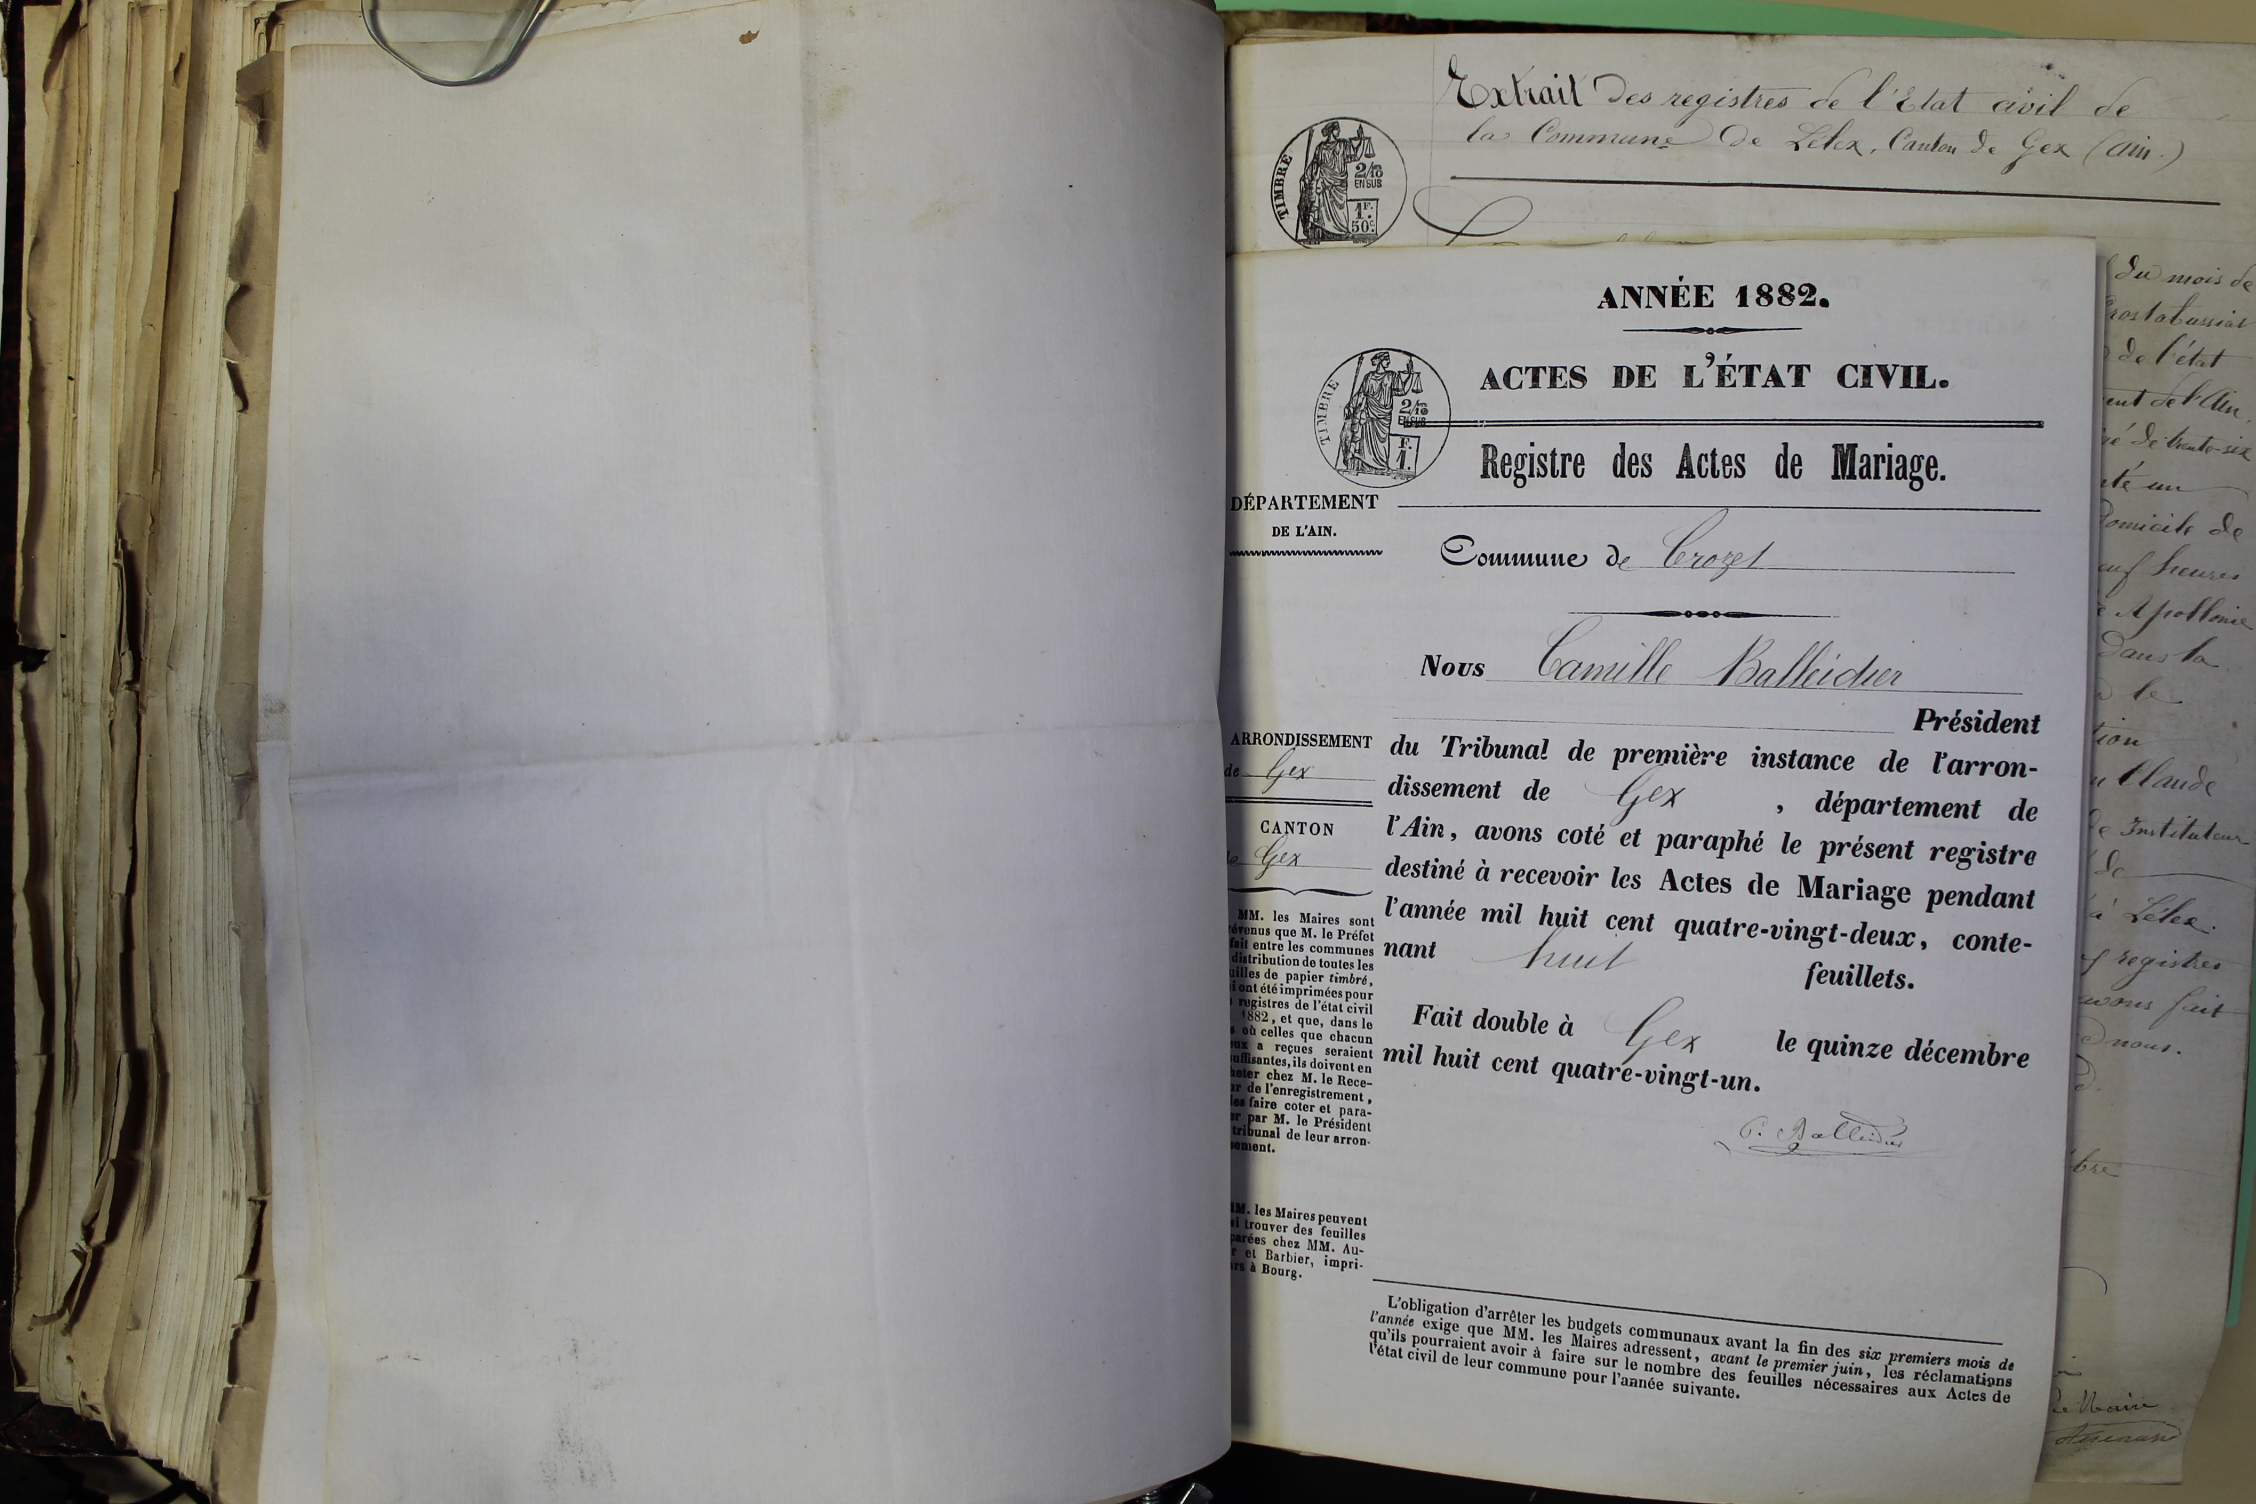 Extrait des registres de l'Etat civil de
la Commune de Lélex, Canton de Gex (Ain.)
TIMBRE
2/10
EN SUS
1F.
50c.
du mois de
de l'état
de l'Ain,
de trente-six
un
Domicile de
heures
Apollonie
dans la
le
Claude
Instituteur
de
à Lélex.
registres
avons fait
nous.
Maire
ANNÉE 1882.
ACTES DE L'ÉTAT CIVIL.
TIMBRE
2/10
EN SUS
F.
1.
Registre des Actes de Mariage.
DÉPARTEMENT
DE L'AIN.
Commune de Crozet
Nous Camille Balleidier
Président
du Tribunal de première instance de l'arron-
dissement de Gex, département de
l'Ain, avons coté et paraphé le présent registre
destiné à recevoir les Actes de Mariage pendant
l'année mil huit cent quatre-vingt-deux, conte-
nant huit feuillets.
Fait double à Gex le quinze décembre
mil huit cent quatre-vingt-un.
C. Balleidier
ARRONDISSEMENT
de Gex
CANTON
Gex
MM. les Maires sont
que M. le Préfet
fait entre les communes
distribution de toutes les
de papier timbré,
ont été imprimées pour
registres de l'état civil
1882, et que, dans le
où celles que chacun
a reçues seraient
ils doivent en
chez M. le Rece-
de l'enregistrement,
faire coter et para-
par M. le Président
tribunal de leur arron-
MM. les Maires peuvent
trouver des feuilles
chez MM. Au-
et Barbier, impri-
à Bourg.
L'obligation d'arrêter les budgets communaux avant la fin des six premiers mois de
l'année exige que MM. les Maires adressent, avant le premier juin, les réclamations
qu'ils pourraient avoir à faire sur le nombre des feuilles nécessaires aux Actes de
l'état civil de leur commune pour l'année suivante.